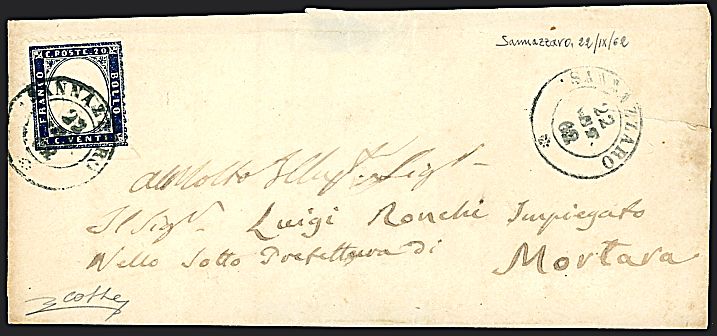 Sannazzaro, 22/IX/62
C. POSTE. 20
FRANCO
BOLLO
C. VENTI
SANNAZZARO
22
SANNAZZARO
22
SET
62
All Molto Illust. Sigr.
Il Sigr. Luigi Ronchi Impiegato
Nello Sotto Prefettura di Mortara